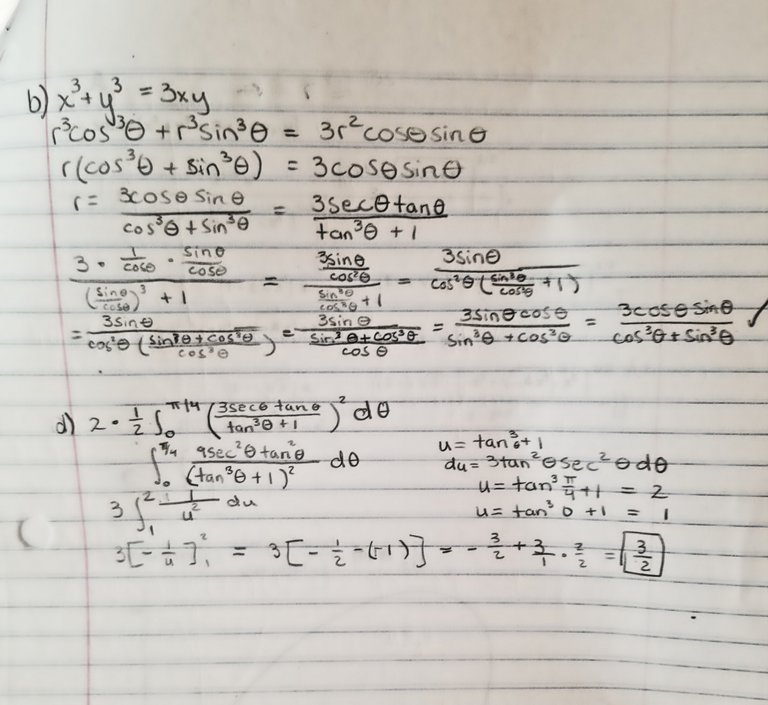 b) x³ + y³ = 3xy
r³cos³θ + r³sin³θ = 3r²cosθsinθ
r(cos³θ + sin³θ) = 3cosθsinθ
r = (3cosθ sinθ)/(cos³θ + sin³θ) = (3secθtanθ)/(tan³θ + 1)
(3 · 1/cosθ · sinθ/cosθ)/((sinθ/cosθ)³ + 1) = (3sinθ/cos²θ)/(sin³θ/cos³θ + 1) = 3sinθ/(cos²θ(sin³θ/cos³θ + 1))
= 3sinθ/(cos²θ((sin³θ + cos³θ)/cos³θ)) = 3sinθ/((sin³θ + cos³θ)/cosθ) = 3sinθcosθ/(sin³θ + cos³θ) = 3cosθsinθ/(cos³θ + sin³θ) ✓
d) 2 · ½ ∫₀^π/4 ((3secθ tanθ)/(tan³θ + 1))² dθ
∫₀^π/4 (9sec²θtan²θ)/(tan³θ + 1)² dθ
u = tan³θ + 1
du = 3tan²θsec²θdθ
u = tan³ π/4 + 1 = 2
u = tan³ 0 + 1 = 1
3 ∫₁² 1/u² du
3[-1/u]₁² = 3[-1/2 - (-1)] = -3/2 + 3/1 · 2/2 = 3/2